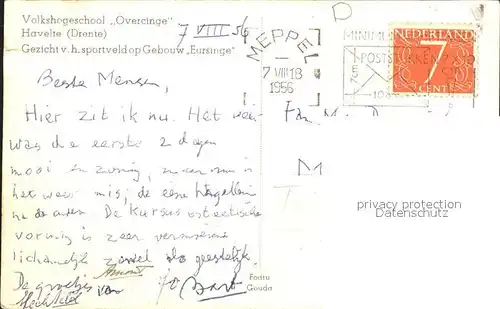 Volkshogeschool „Overcinge"
Havelte (Drente)
Gezicht v. h. sportveld op Gebouw „Eursinge"
7 VIII 56
MEPPEL
7 VIII 18
1956
MINIM
POSTSTUKKEN
NEDERLAND
7
CENT
Beste Mensen,
Hier zit ik nu. Het weer
was de eerste 2 dagen
mooi en zonnig, maar nu is
het weer mis; de eene
na de andere. De Kursus
vorming is zeer
lichamelijk zowel als geestelijk.
De groetjes van Jo Bart
Fam.
M
privacy protection
Datenschutz
Foditu
Gouda